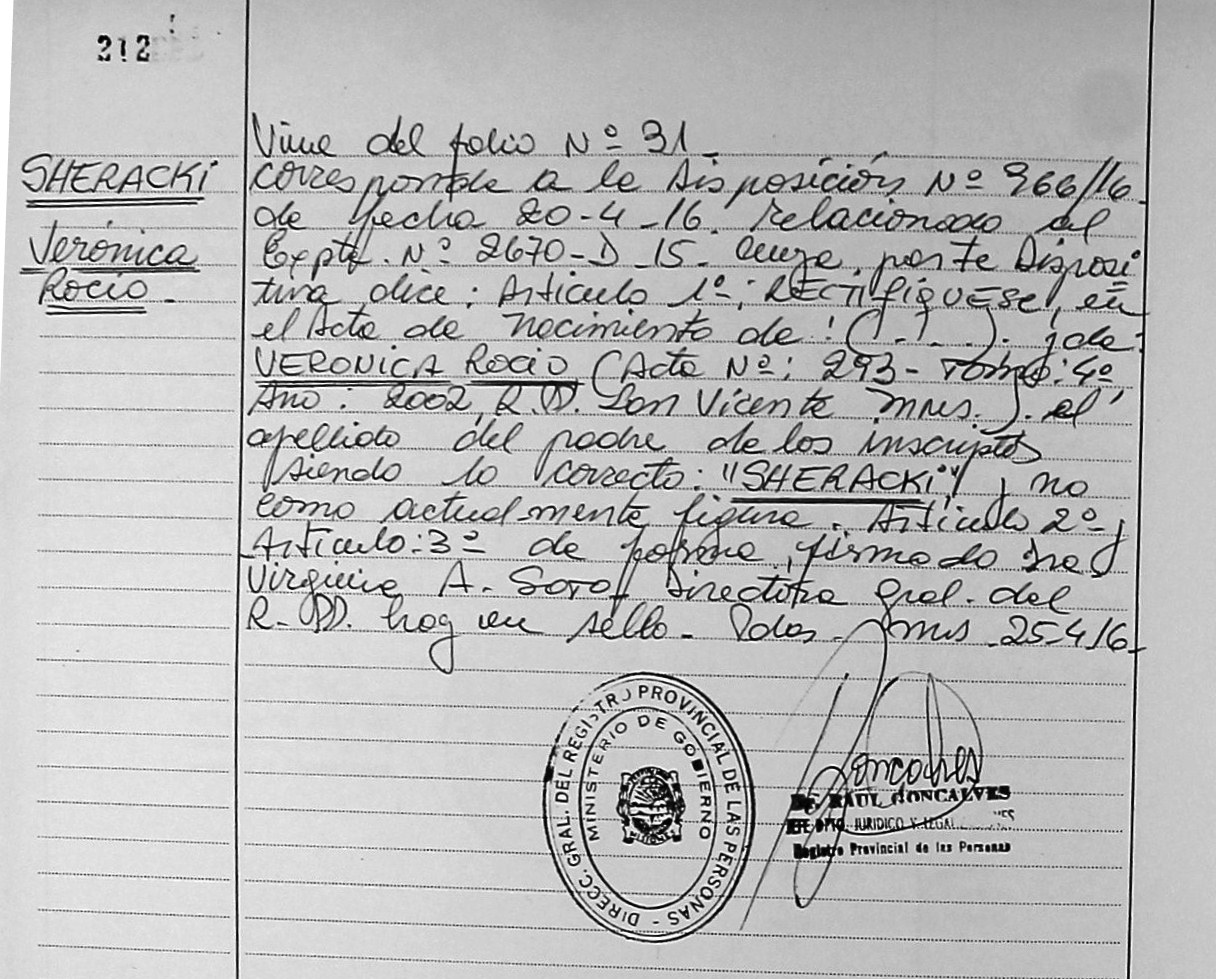 212
SHERACKI
Verónica
Rocio -
Viene del folio Nº 31 -
Corresponde a la Disposición Nº 966/16
de fecha 20-4-16. relacionado al
Expte. Nº 2670-D-15- cuya parte Disposi
tiva dice: Articulo 1º: RECTIFIQUESE, en
el Acta de Nacimiento de: (...). de:
VERONICA Rocio (Acta Nº: 293- Tomo: 4º
Ano: 2002, R.PP. San Vicente Mnes.). el
apellido del padre de los inscriptos
siendo lo correcto: "SHERACKI" y no
como actualmente figura. Artículo 2º y
Artículo: 3º de forma, firmado Sra
Virginia A. Soto Directora Gral. del
R.PP. hay un sello - Pdas. Mns 25-4-16-
DIRECC. GRAL. DEL REGISTRO PROVINCIAL DE LAS PERSONAS -
MINISTERIO DE GOBIERNO
Dr. RAUL GONCALVES
JEFE DPTO. JURIDICO Y LEGAL
Registro Provincial de las Personas